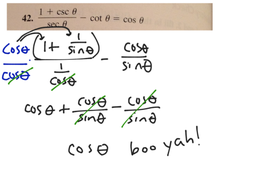 42. (1 + csc θ)/(sec θ) − cot θ = cos θ
cosθ/cosθ · (1 + 1/sinθ)/(1/cosθ) − cosθ/sinθ
cosθ + cosθ/sinθ − cosθ/sinθ
cosθ boo yah!